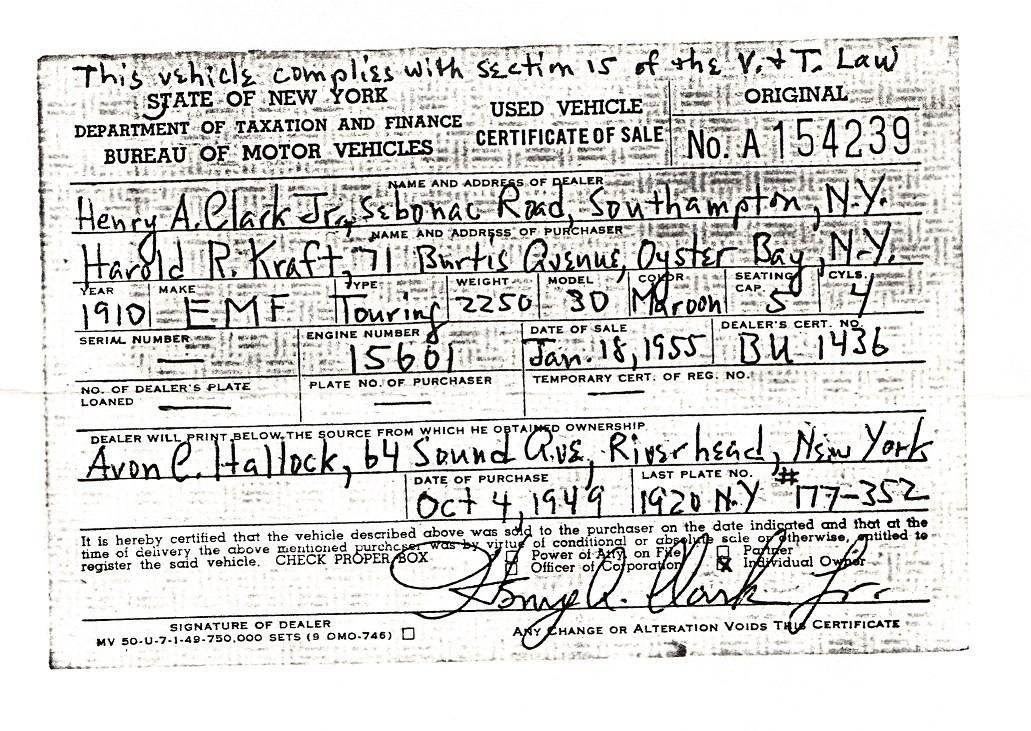 This vehicle complies with section 15 of the V. & T. Law
STATE OF NEW YORK
DEPARTMENT OF TAXATION AND FINANCE
BUREAU OF MOTOR VEHICLES
USED VEHICLE
CERTIFICATE OF SALE
ORIGINAL
No. A 154239
NAME AND ADDRESS OF DEALER
Henry A. Clark Jr., Sebonac Road, Southampton, N.Y.
NAME AND ADDRESS OF PURCHASER
Harold R. Kraft, 71 Burtis Avenue, Oyster Bay, N.Y.
YEAR MAKE TYPE WEIGHT MODEL COLOR SEATING CAP. CYLS.
1910 EMF Touring 2250 30 Maroon 5 4
SERIAL NUMBER ENGINE NUMBER DATE OF SALE DEALER'S CERT. NO.
— 15601 Jan. 18, 1955 BU 1436
NO. OF DEALER'S PLATE LOANED PLATE NO. OF PURCHASER TEMPORARY CERT. OF REG. NO.
— — —
DEALER WILL PRINT BELOW THE SOURCE FROM WHICH HE OBTAINED OWNERSHIP
Avon C. Hallock, 64 Sound Ave, Riverhead, New York
DATE OF PURCHASE LAST PLATE NO.
Oct 4, 1949 1920 N.Y # 177-352
It is hereby certified that the vehicle described above was sold to the purchaser on the date indicated and that at the
time of delivery the above mentioned purchaser was by virtue of conditional or absolute sale or otherwise, entitled to
register the said vehicle. CHECK PROPER BOX
☐ Power of Atty. on File ☐ Partner
☐ Officer of Corporation ☒ Individual Owner
Henry A. Clark Jr.
SIGNATURE OF DEALER
MV 50-U-7-1-49-750,000 SETS (9 OMO-746) ☐
ANY CHANGE OR ALTERATION VOIDS THIS CERTIFICATE